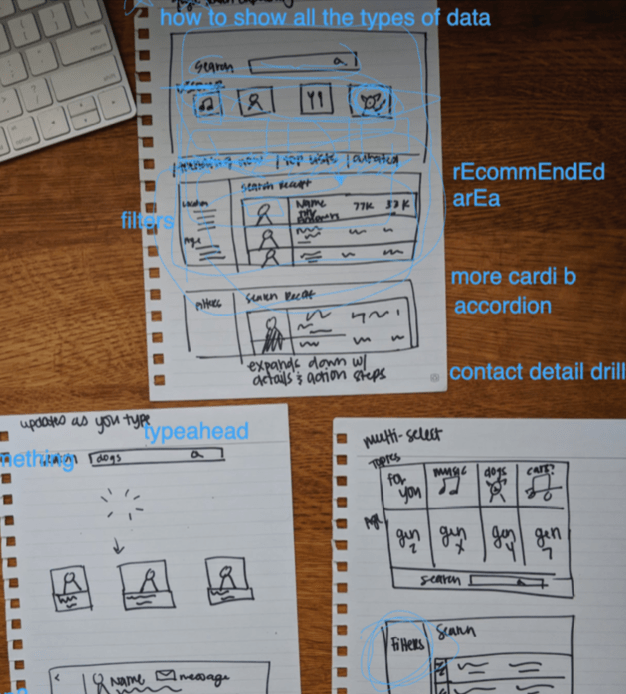 how to show all the types of data
search
trending now | top lists | curated
Search Result
Location
Name
77K 33K
filters
Age
rEcommEndEd
arEa
more cardi b
accordion
Filters
Search Result
expands down w/
details & action steps
contact detail drill
updates as you type
typeahead
mething
dogs
Name
message
multi-select
Topics
for
you
music
dogs
cars?
Age
gen
Z
gen
X
gen
Y
gen
search
Filters
Search